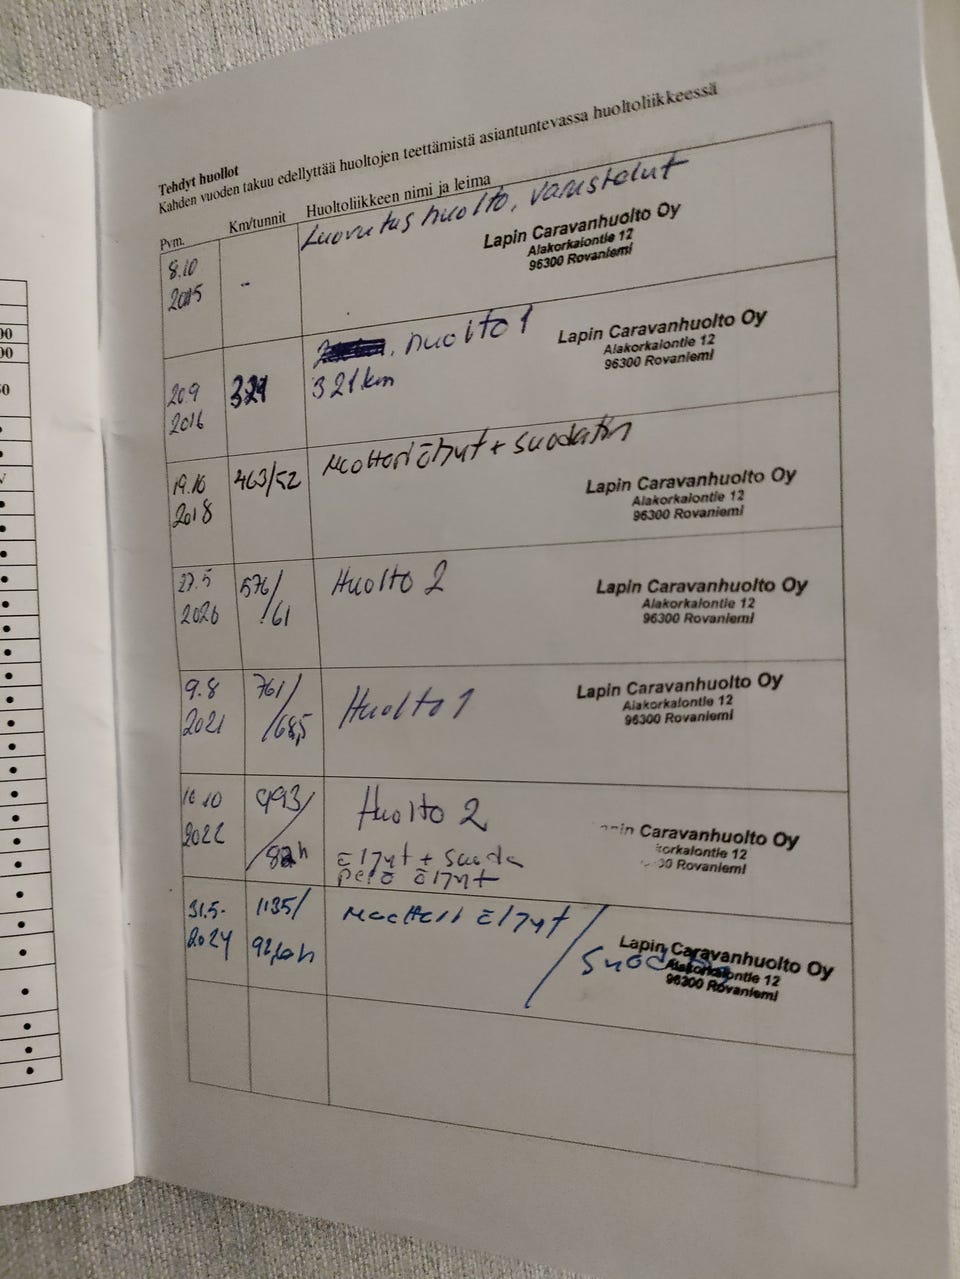 Tehdyt huollot
Kahden vuoden takuu edellyttää huoltojen teettämistä asiantuntevassa huoltoliikkeessä
Pvm. Km/tunnit Huoltoliikkeen nimi ja leima
8.10 2015 - Luovutus huolto, varustelut
Lapin Caravanhuolto Oy
Alakorkalontie 12
96300 Rovaniemi
20.9 2016 321 , Huolto 1
321 km
Lapin Caravanhuolto Oy
Alakorkalontie 12
96300 Rovaniemi
19.10 2018 463/52 Moottoriöljyt + suodatin
Lapin Caravanhuolto Oy
Alakorkalontie 12
96300 Rovaniemi
27.5 2020 576/61 Huolto 2
Lapin Caravanhuolto Oy
Alakorkalontie 12
96300 Rovaniemi
9.8 2021 761/68,5 Huolto 1
Lapin Caravanhuolto Oy
Alakorkalontie 12
96300 Rovaniemi
10 2022 993/82h Huolto 2
öljyt + suoda
perä öljyt
Caravanhuolto Oy
korkalontie 12
00 Rovaniemi
31.5. 2024 1135/ Moottori öljyt /
Lapin Caravanhuolto Oy
Alakorkalontie 12
96300 Rovaniemi
00
00
50